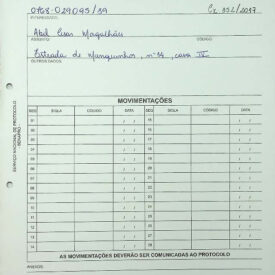 0768.029095/39
Cx 352/2017
INTERESSADO:
Abel Elias Magalhães
ASSUNTO:
CÓDIGO:
Estrada de Manguinhos, nº 14, casa IX
OUTROS DADOS:
MOVIMENTAÇÕES
SEQ SIGLA CÓDIGO DATA SEQ SIGLA CÓDIGO DATA
01 / / 15 / /
02 / / 16 / /
03 / / 17 / /
04 / / 18 / /
05 / / 19 / /
06 / / 20 / /
07 / / 21 / /
08 / / 22 / /
09 / / 23 / /
10 / / 24 / /
11 / / 25 / /
12 / / 26 / /
13 / / 27 / /
14 / / 28 / /
AS MOVIMENTAÇÕES DEVERÃO SER COMUNICADAS AO PROTOCOLO
ANEXOS:
SERVIÇO NACIONAL DE PROTOCOLO